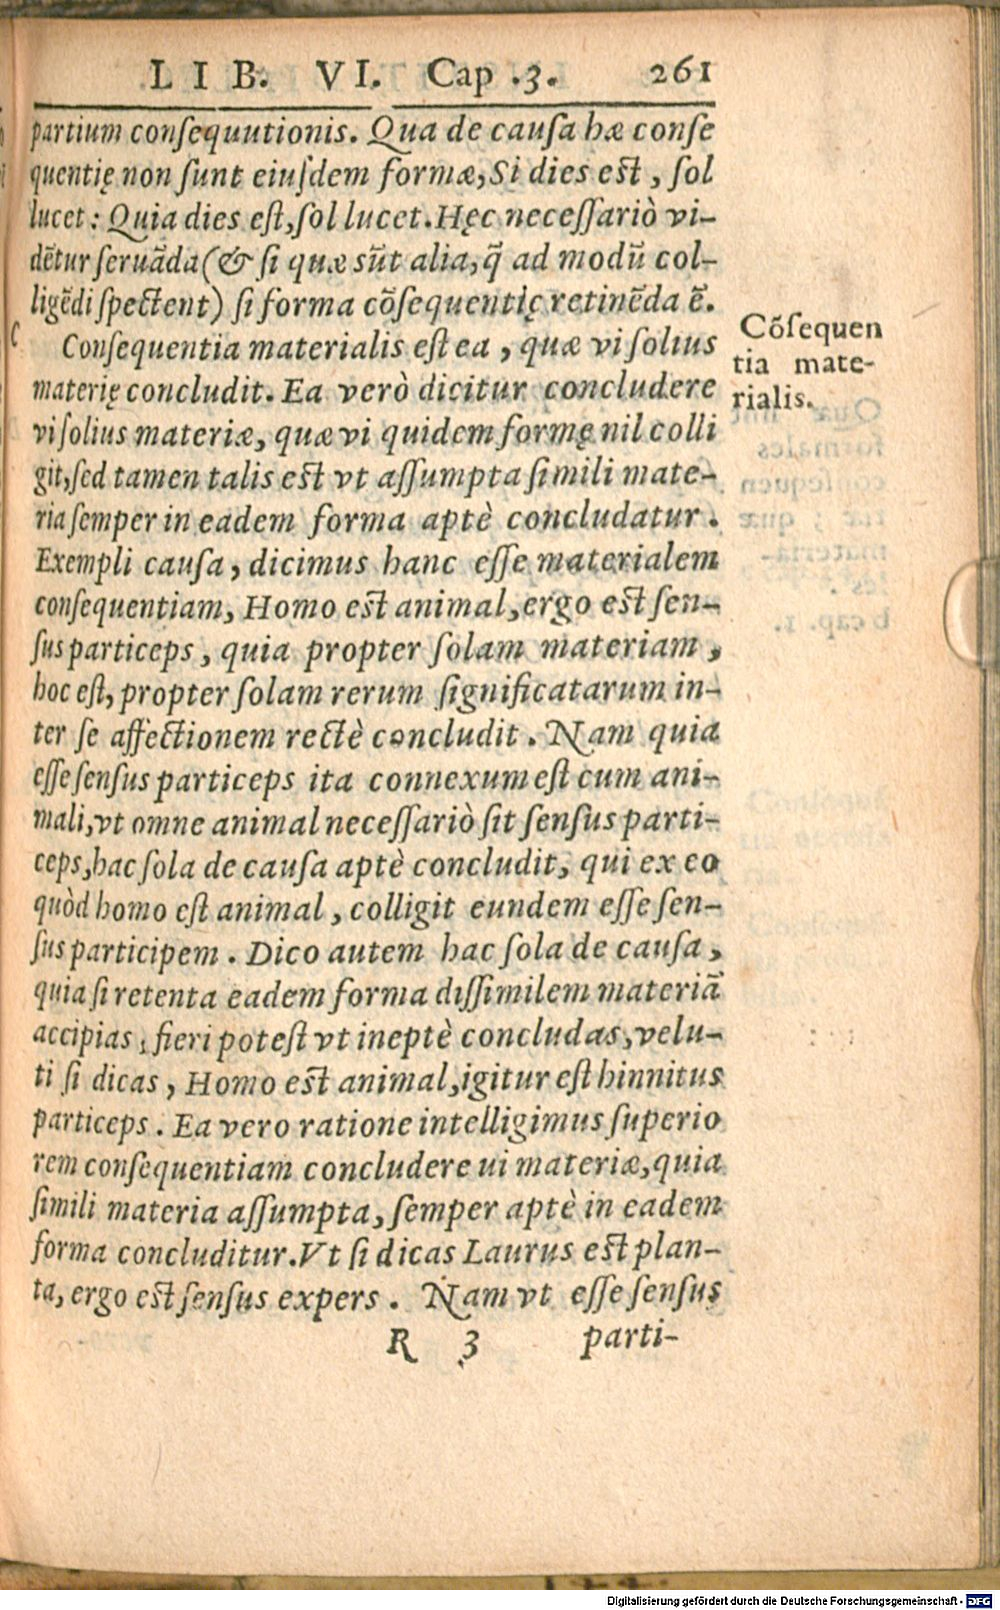 LIB. VI. Cap .3. 261
partium consequutionis. Qua de causa hæ conse
quentię non sunt eiusdem formæ, Si dies est, sol
lucet: Quia dies est, sol lucet. Hęc necessariò vi-
dētur seruāda (& si quæ sūt alia, q̄ ad modū col-
ligēdi spectent) si forma cōsequentię retinēda ē.
Consequentia materialis est ea, quæ vi solius
materię concludit. Ea verò dicitur concludere
vi solius materiæ, quæ vi quidem formę nil colli
git, sed tamen talis est vt assumpta simili mate-
ria semper in eadem forma aptè concludatur.
Exempli causa, dicimus hanc esse materialem
consequentiam, Homo est animal, ergo est sen-
sus particeps, quia propter solam materiam,
hoc est, propter solam rerum significatarum in-
ter se affèctionem rectè concludit. Nam quia
esse sensus particeps ita connexum est cum ani-
mali, vt omne animal necessariò sit sensus parti-
ceps, hac sola de causa aptè concludit, qui ex eo
quòd homo est animal, colligit eundem esse sen-
sus participem. Dico autem hac sola de causa,
quia si retenta eadem forma dissimilem materiā
accipias, fieri potest vt ineptè concludas, velu-
ti si dicas, Homo est animal, igitur est hinnitus
particeps. Ea vero ratione intelligimus superio
rem consequentiam concludere ui materiæ, quia
simili materia assumpta, semper aptè in eadem
forma concluditur. Vt si dicas Laurus est plan-
ta, ergo est sensus expers. Nam vt esse sensus
R 3 parti-
Cōsequen
tia mate-
rialis.
Digitalisierung gefördert durch die Deutsche Forschungsgemeinschaft - DFG